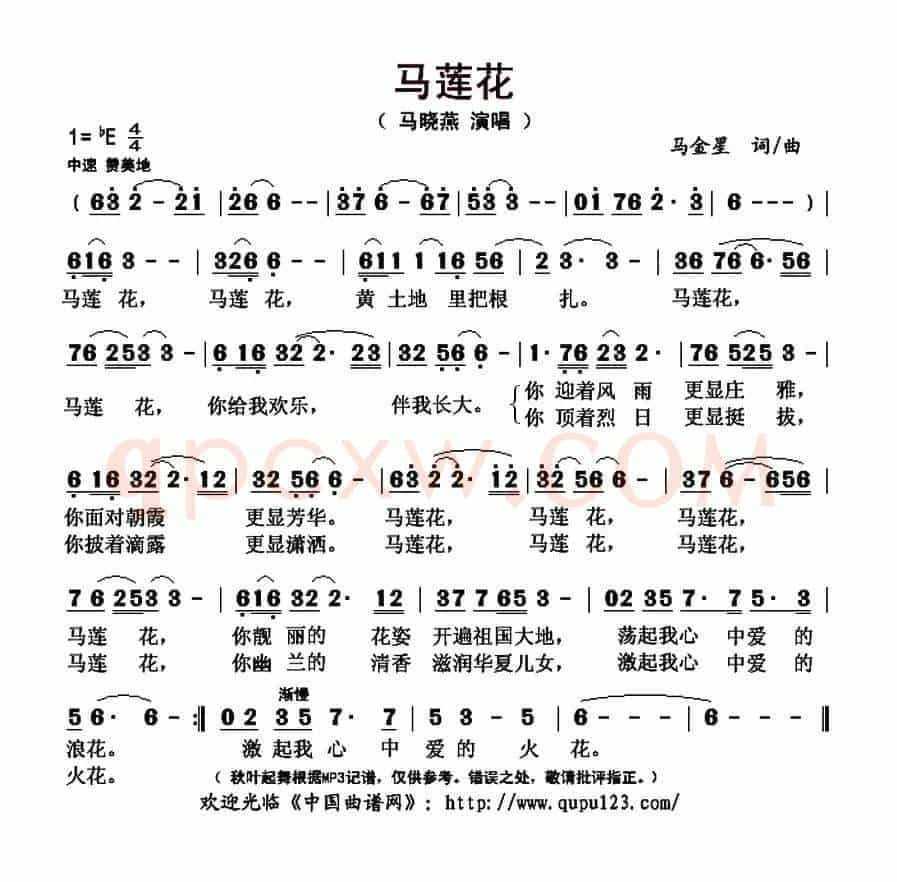 马莲花
（ 马晓燕 演唱 ）
1= ♭E 4/4
马金星 词/曲
中速 赞美地
（ 63 2 - 21 | 26 6 - - | 37 6 - 67 | 53 3 - - | 01 76 2· 3 | 6 - - - ）|
616 3 - - | 326 6 - - | 611 1 16 56 | 2 3· 3 - | 36 76 6· 56 |
马莲 花， 马莲 花， 黄 土地 里把根 扎。 马莲花，
76 253 3 - | 6 16 32 2· 23 | 32 56 6 - | 1· 76 23 2· | 76 525 3 - |
马莲 花， 你给我欢乐， 伴我长大。 你 迎着风 雨 更显庄 雅，
你 顶着烈 日 更显挺 拔，
qpcxw.COM
6 16 32 2· 12 | 32 56 6 - | 63 2 2· 12 | 32 56 6 - | 37 6 - 656 |
你面对朝霞 更显芳华。 马莲花， 马莲 花， 马莲花，
你披着滴露 更显潇洒。 马莲花， 马莲 花， 马莲花，
7 6 253 3 - | 616 32 2· 12 | 37 765 3 - | 02 35 7· 7 | 5· 3 |
马莲 花， 你靓 丽的 花姿 开遍祖国大地， 荡起我心 中爱的
马莲 花， 你幽 兰的 清香 滋润华夏儿女， 激起我心 中爱的
渐慢
5 6· 6 - :‖ 02 35 7· 7 | 5 3 5 - | 6 - - - | 6 - - ‖
浪花。 激 起我 心 中 爱 的 火 花。
火花。 （ 秋叶起舞根据MP3记谱，仅供参考。错误之处，敬请批评指正。）
欢迎光临《中国曲谱网》：http://www.qupu123.com/